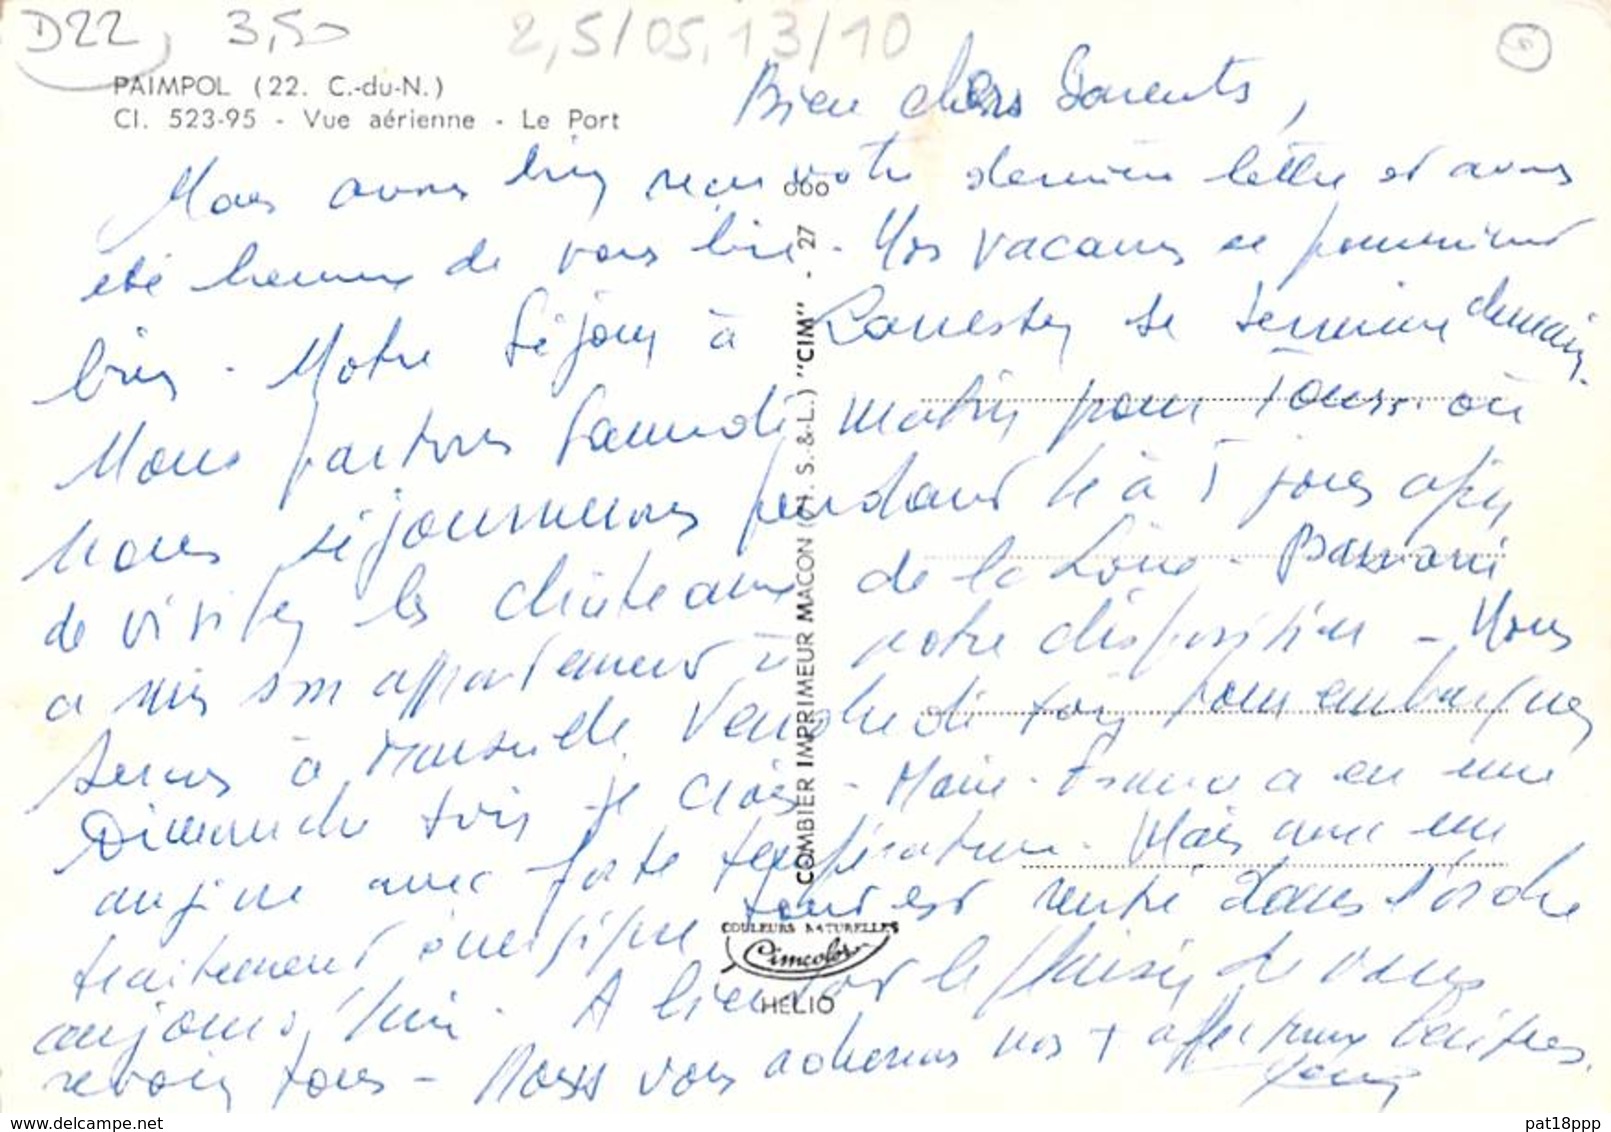 D22 3,50 2,5/05,13/10
PAIMPOL (22. C.-du-N.)
Cl. 523-95 - Vue aérienne - Le Port
Bien chers Parents,
Nous avons bien reçu votre dernière lettre et avons
été heureux de vous lire. Nos vacances se poursuivent
bien. Notre séjour à se termine demain.
Nous partons Samedi matin pour Tours où
nous séjournerons pendant 4 à 5 jours afin
de visiter les châteaux de la Loire.
a mis son appartement à notre disposition - Nous
serons à Marseille Vendredi soir pour embarquer
Dimanche soir je crois - Marie-France a eu une
angine avec forte température. Mais avec un
traitement énergique tout est rentré dans l'ordre
aujourd'hui. A bientôt le plaisir de vous
revoir tous - Nous vous adressons nos + affectueux baisers.
COMBIER IMPRIMEUR MACON (71. S.-&-L.) "CIM" - 27 000
COULEURS NATURELLES
Cimcolor
HELIO
pat18ppp